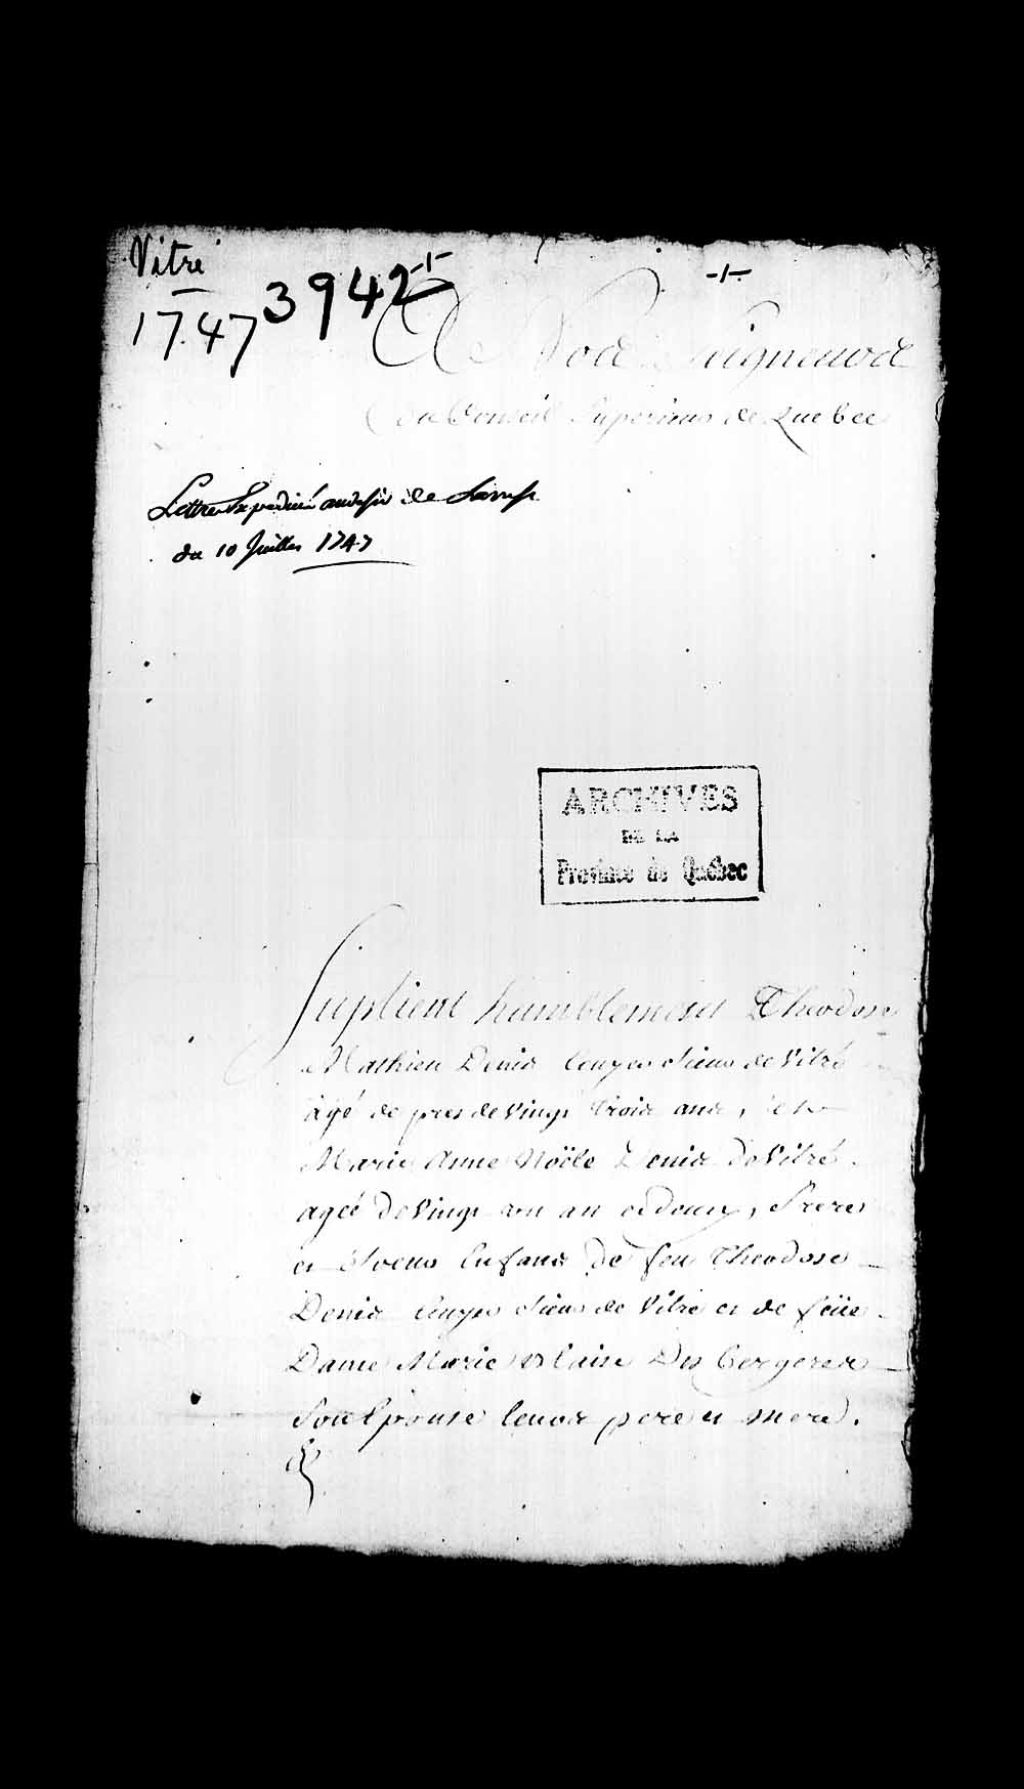 Vitré
1747
3942 -1-
-1-
A Nos Seigneurs
Du Conseil Superieur de Quebec
Lettre Expediée
du 10 Juillet 1747
ARCHIVES
DE LA
Province de Québec
Suplient humblement Theodose
Mathieu Denis Ecuyer Sieur de Vitré
âgé de pres de Vingt trois ans, et
Marie Anne Noële Denis de Vitré
agée de Vingt un an, freres
et Soeurs Enfans de feu Theodose
Denis Ecuyer Sieur de Vitré et de feüe
Dame Marie Des Bergeres
Son Epouse leurs pere et mere.